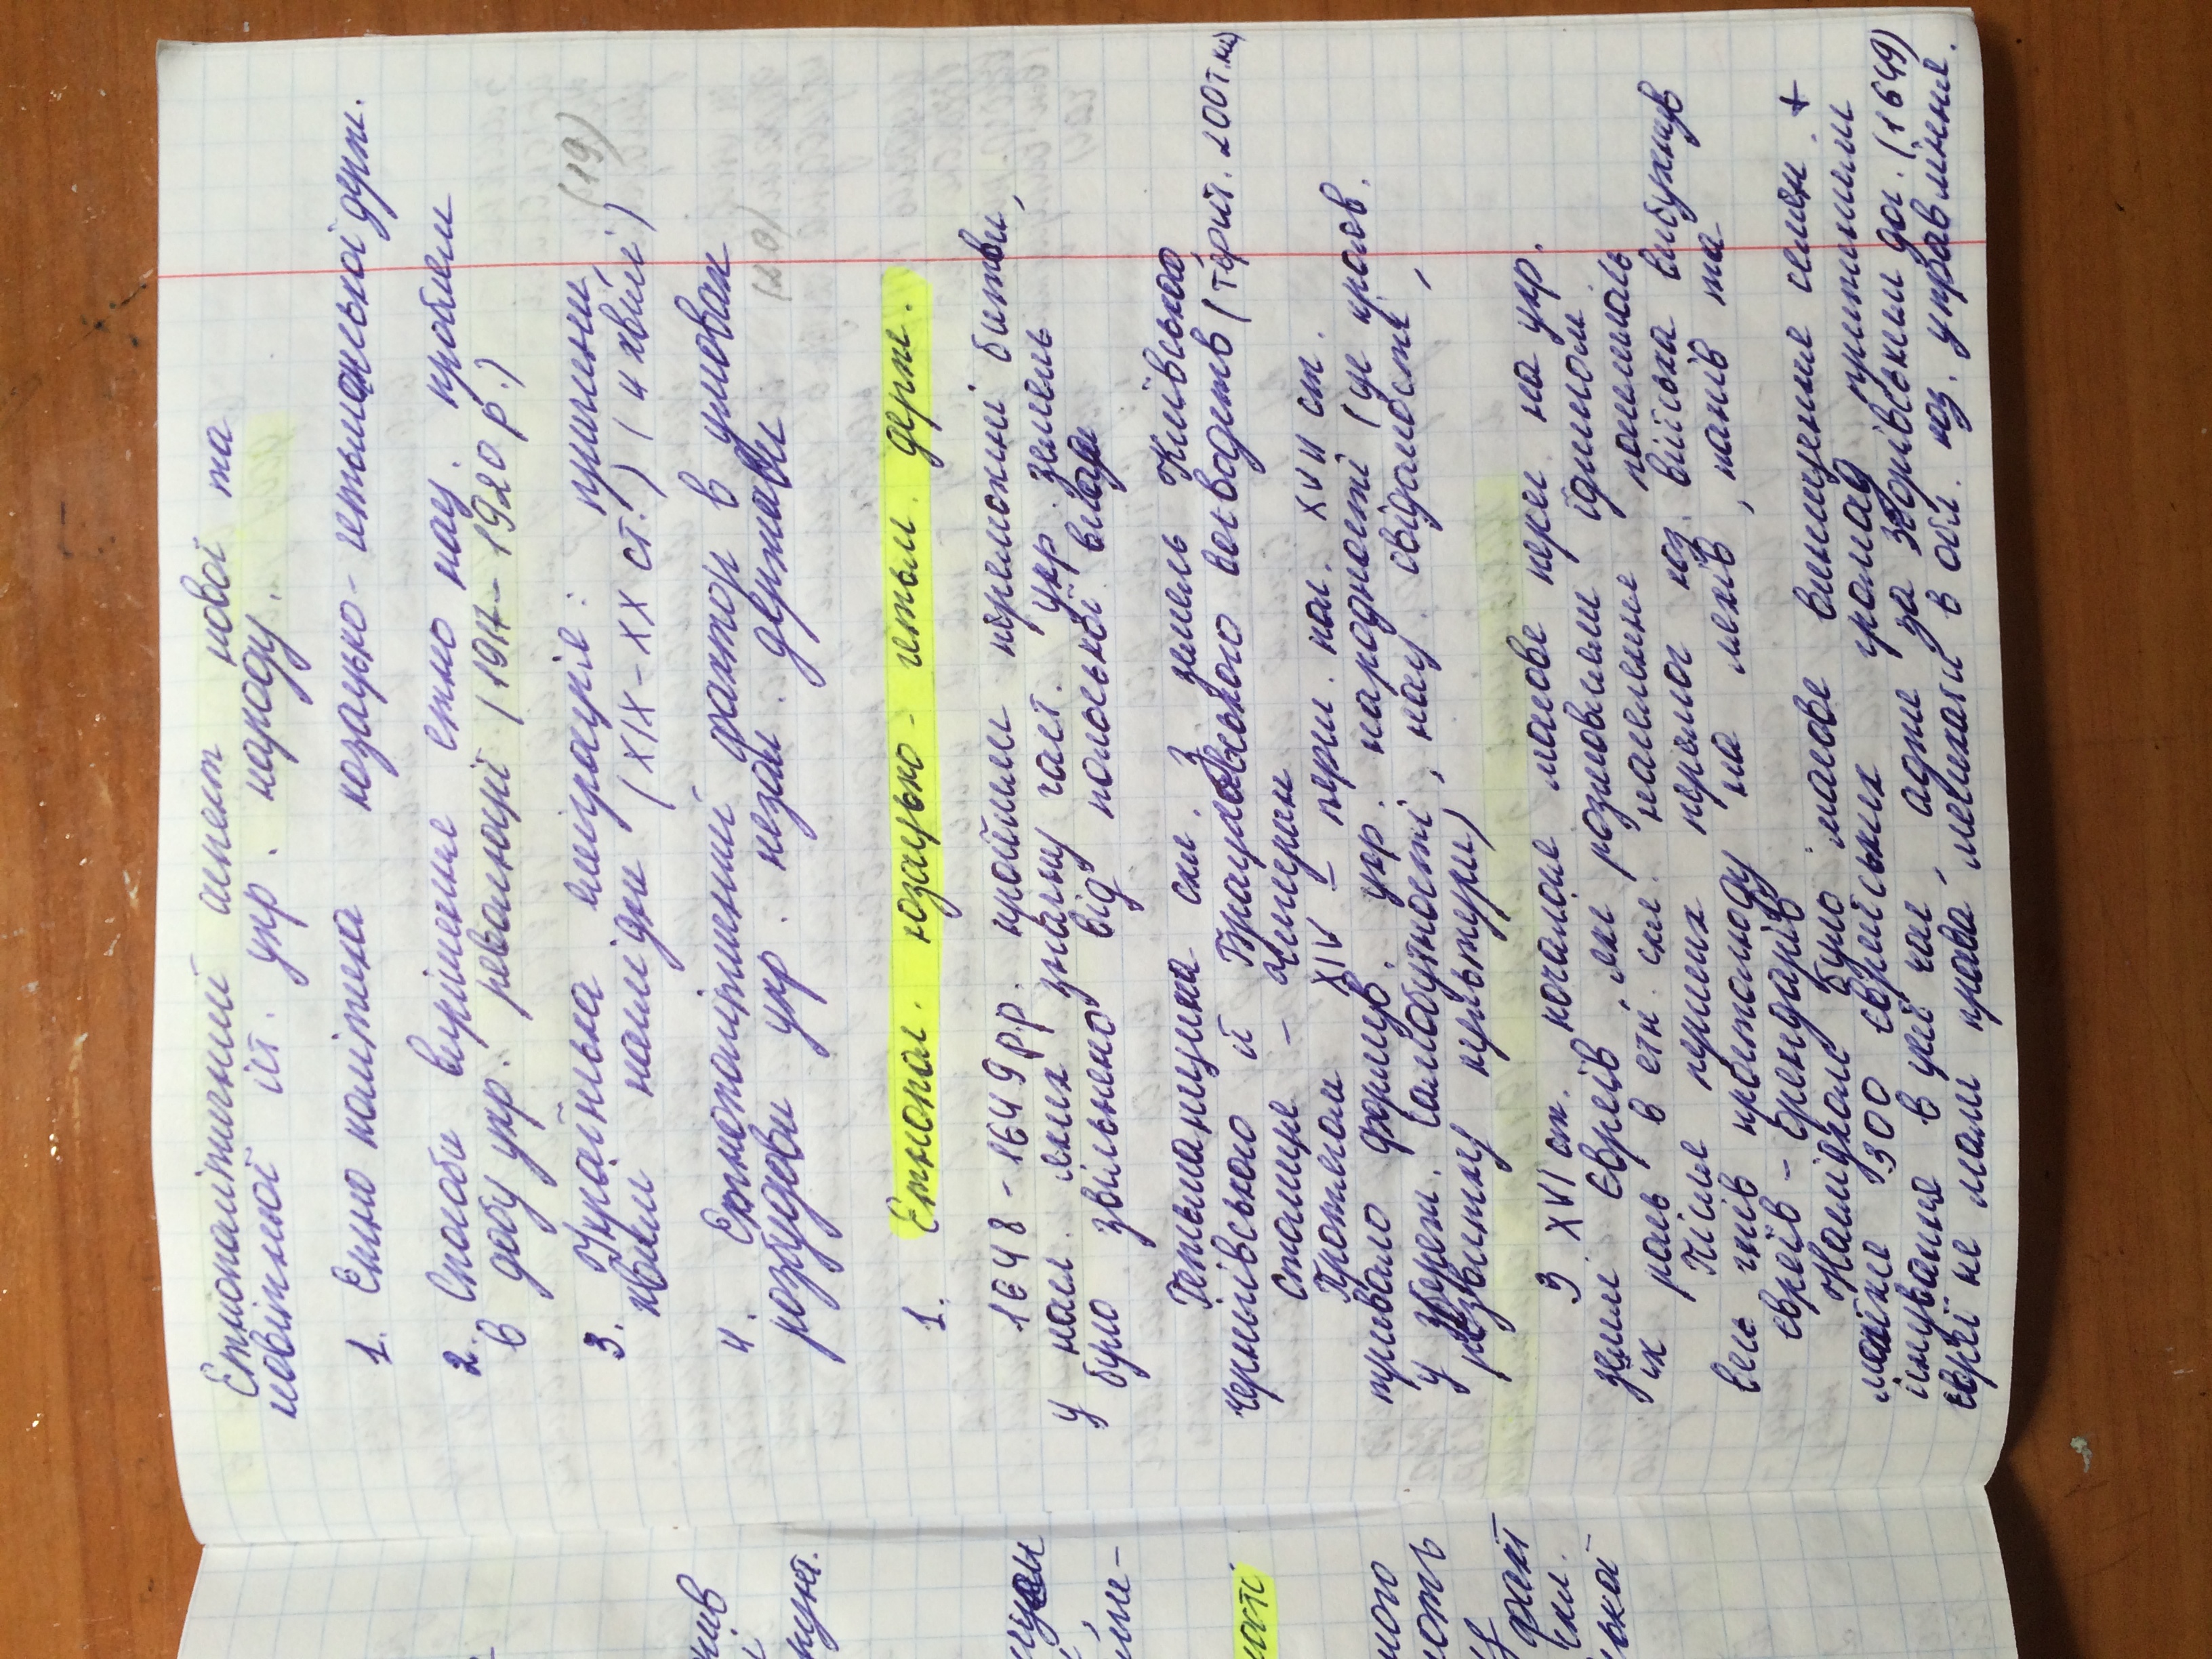 Етнополітичний аспект нової та
новітньої іст. укр. народу.
1. Етно політика козацько-гетьманської держ.
2. Способи вирішення етно нац. проблем
в добу укр. революції (1917-1920 р.)
3. Українська еміграція: причини, (19)
хвилі наслідки (XIX-XX ст.) (4 хвилі)
4. Етнополітичний фактор в умовах
розбудови укр. незал. держави (20)
1. Етнопол. козацько-гетьм. держ.
1648-1649 р.р. пройшли переможні битви,
у насл. яких значну част. укр. земель
було звільнено від польської влади
Гетьманщина скл. з земель Київського
Чернігівського й Брацлавського воєводств (терит. 200т.км)
столиця - Чигирин
Протягом XIV - перш. пол. XVII ст.
тривало формув. укр. народності (це прояв.
у збереж. самобутності, нац. свідомості,
розвитку культури)
З XVI ст. почалося масове перес. на укр.
землі Євреїв, які розмовляли їдишом.
їх роль в етн. скл. населення посилилась
Після перших перемог коз. війська вибухнув
весь гнів простолюду на ляхів, панів та
євреїв - орендарів.
Наслідком було масове винищення семен. +
майже 300 єврейських громад припинили
існування в цей час, адже за Зборівським дог. (1649)
євреї не мали права мешкати в обл. коз. управління.
жив
і
пункт.
ності
ного
ють
факт
скл.
ської